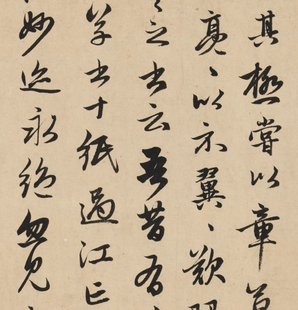 其極嘗以章草
亮亮以示翼翼歎
之書云吾昔有
草書十紙過江亡
妙迹永絕忽見